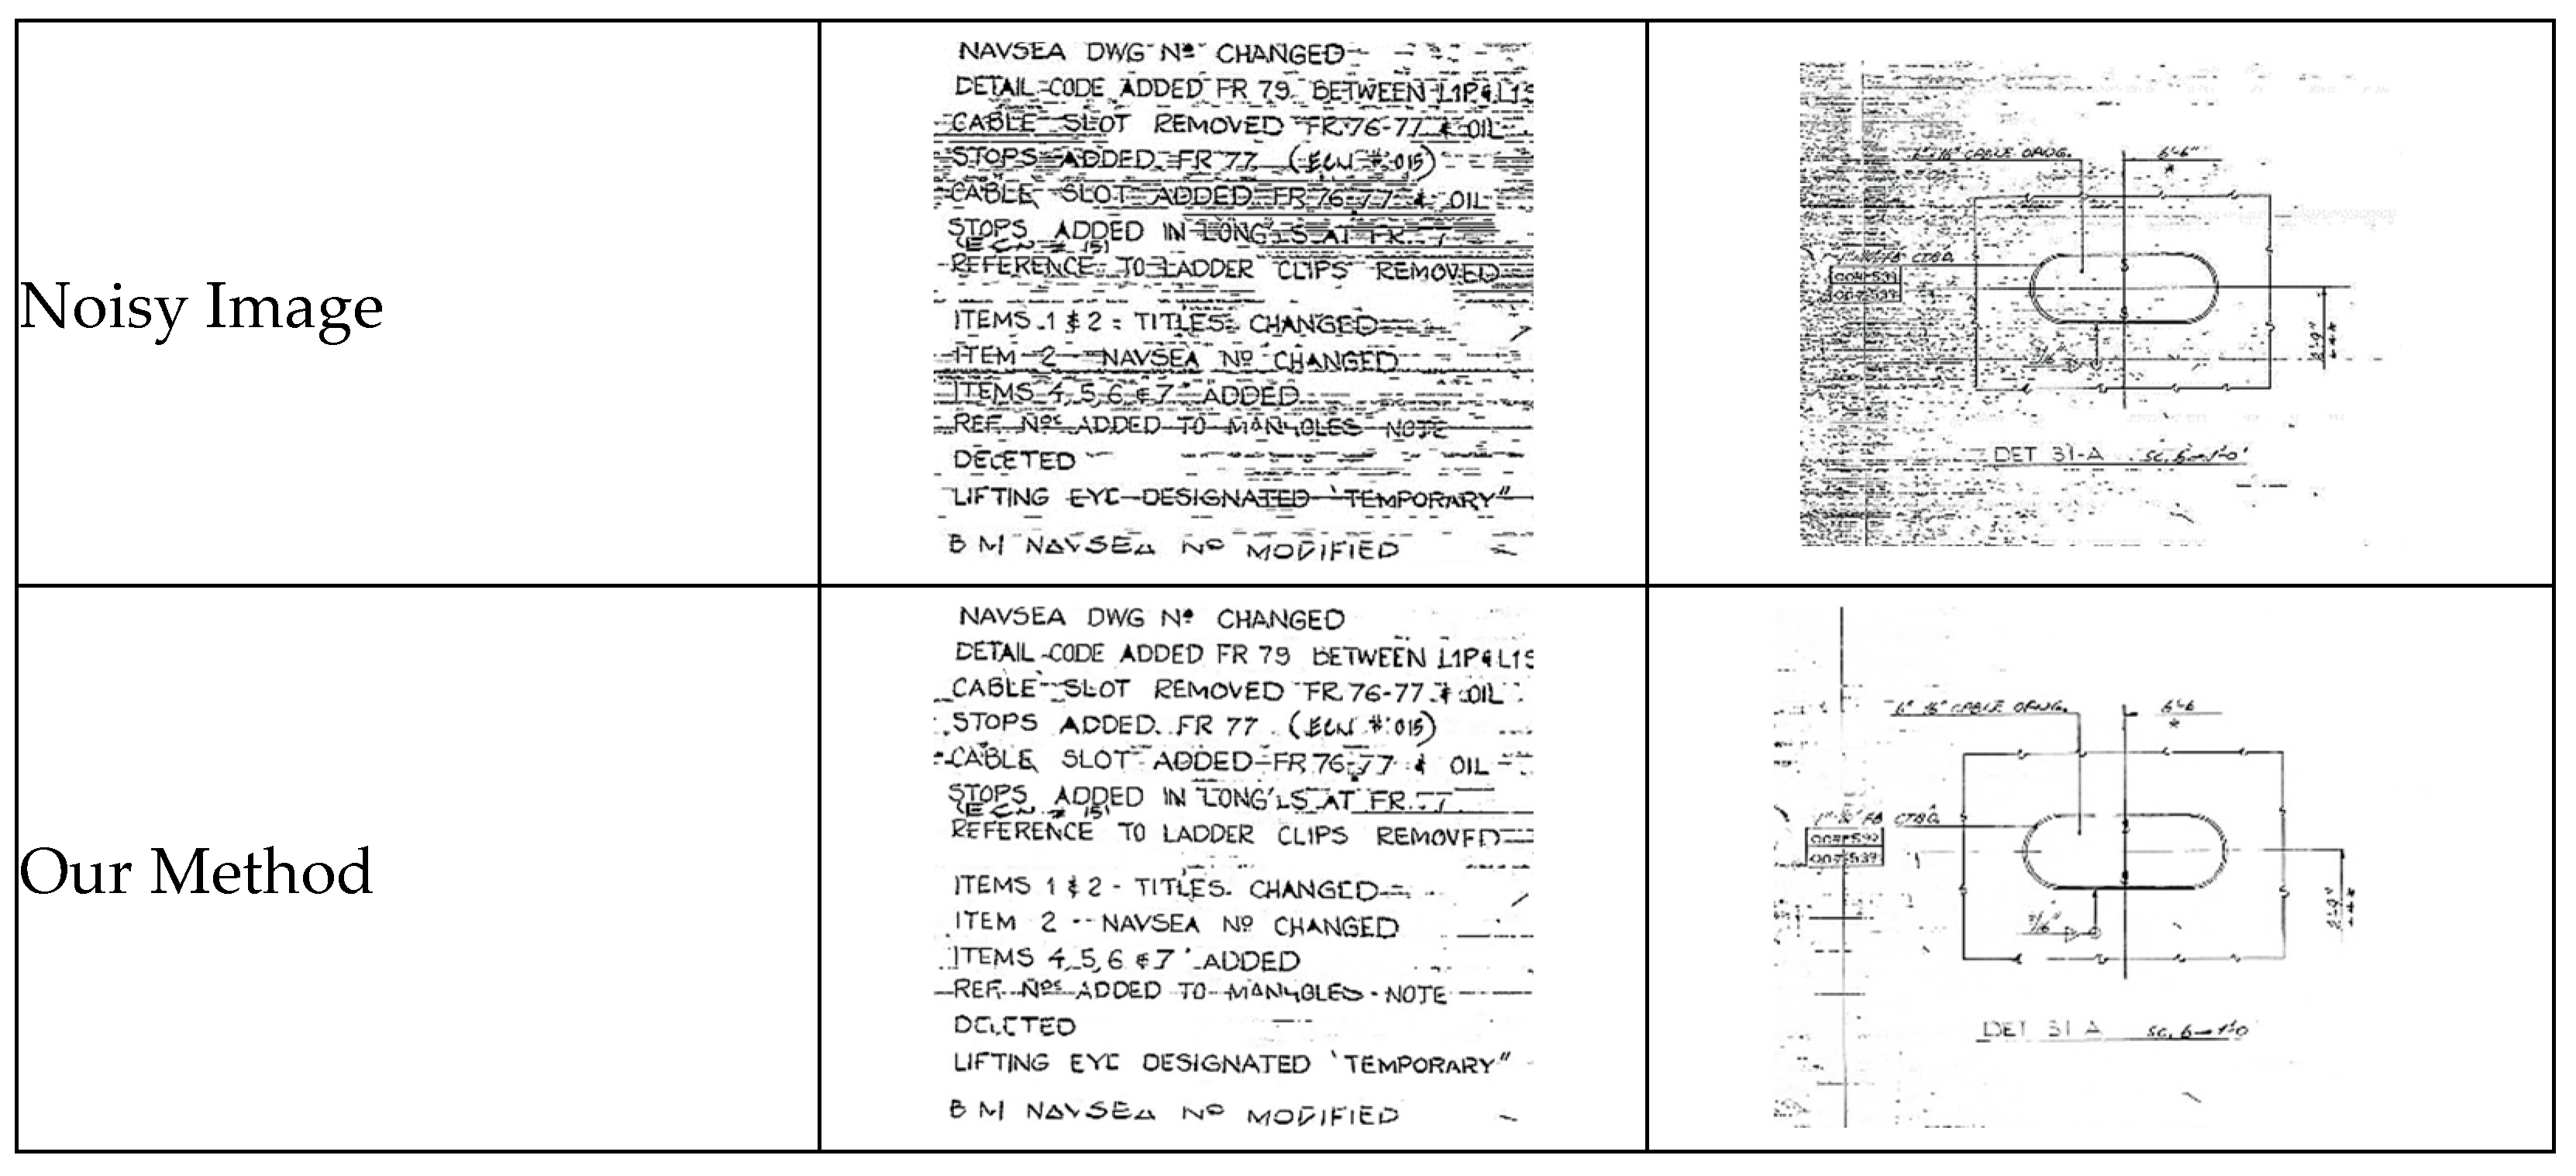 Noisy Image
NAVSEA DWG Nº CHANGED
DETAIL CODE ADDED FR 79 BETWEEN L1P & L1S
CABLE SLOT REMOVED FR 76-77 & OIL
STOPS ADDED FR 77 (ECN # 015)
CABLE SLOT ADDED FR 76-77 & OIL
STOPS ADDED IN LONG'LS AT FR. 77
(ECN # 151
REFERENCE TO LADDER CLIPS REMOVED
ITEMS 1 & 2 - TITLES CHANGED
ITEM 2 - NAVSEA Nº CHANGED
ITEMS 4, 5, 6 & 7 ADDED
REF. Nos ADDED TO MANHOLES NOTE
DELETED
LIFTING EYE DESIGNATED "TEMPORARY"
B M NAVSEA Nº MODIFIED
CABLE OPNG.
6'-6"
*
DET 31-A
Our Method
NAVSEA DWG Nº CHANGED
DETAIL CODE ADDED FR 79 BETWEEN L1P & L1S
CABLE SLOT REMOVED FR 76-77 & OIL
STOPS ADDED FR 77 (ECN # 015)
CABLE SLOT ADDED FR 76-77 & OIL
STOPS ADDED IN LONG'LS AT FR. 77
(ECN # 151
REFERENCE TO LADDER CLIPS REMOVED
ITEMS 1 & 2 - TITLES CHANGED
ITEM 2 - NAVSEA Nº CHANGED
ITEMS 4, 5, 6 & 7 ADDED
REF. Nos ADDED TO MANHOLES NOTE
DELETED
LIFTING EYE DESIGNATED "TEMPORARY"
B M NAVSEA Nº MODIFIED
CABLE OPNG.
6'-6
*
DET 31 A